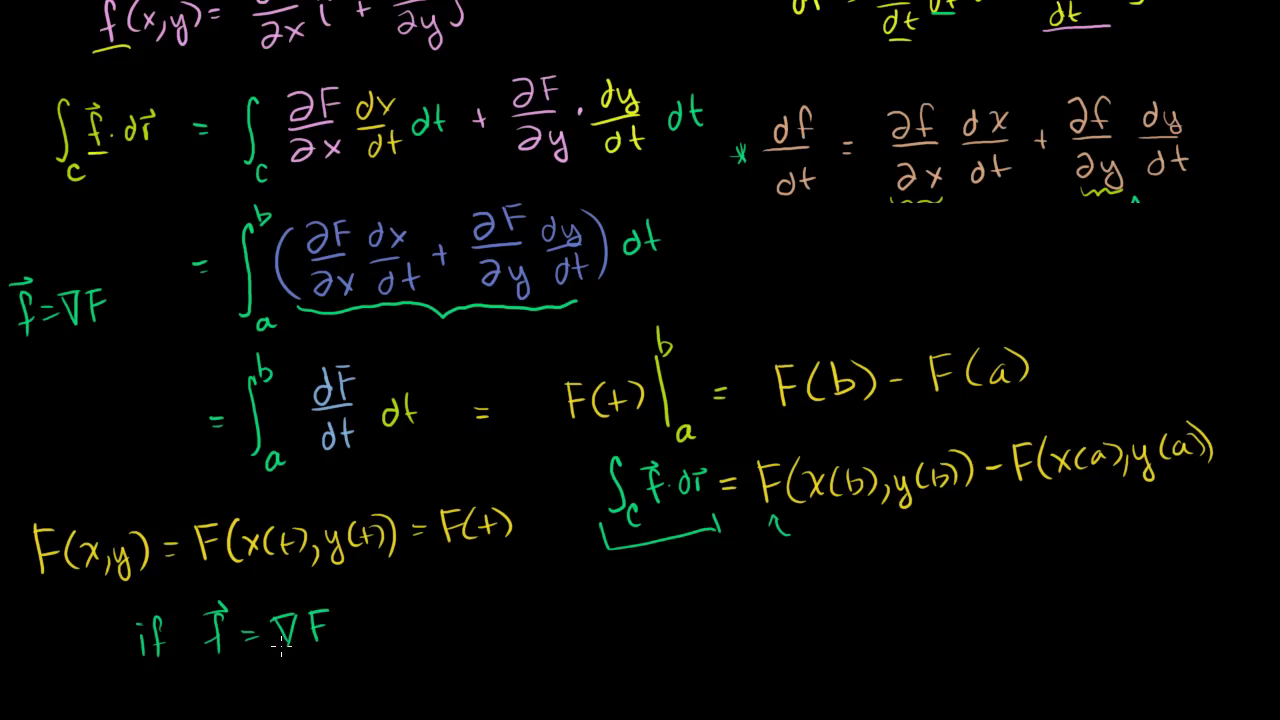 f(x,y) = ∂/∂x i + /∂y j
dt dt
∫_C f⃗ · dr⃗ = ∫_C ∂F/∂x dx/dt dt + ∂F/∂y · dy/dt dt
* df/dt = ∂f/∂x dx/dt + ∂f/∂y dy/dt
= ∫_a^b (∂F/∂x dx/dt + ∂F/∂y dy/dt) dt
f⃗ = ∇F
= ∫_a^b dF/dt dt = F(t) |_a^b = F(b) - F(a)
∫_C f⃗ · dr⃗ = F(x(b), y(b)) - F(x(a), y(a))
F(x,y) = F(x(t), y(t)) = F(t)
if f⃗ = ∇F